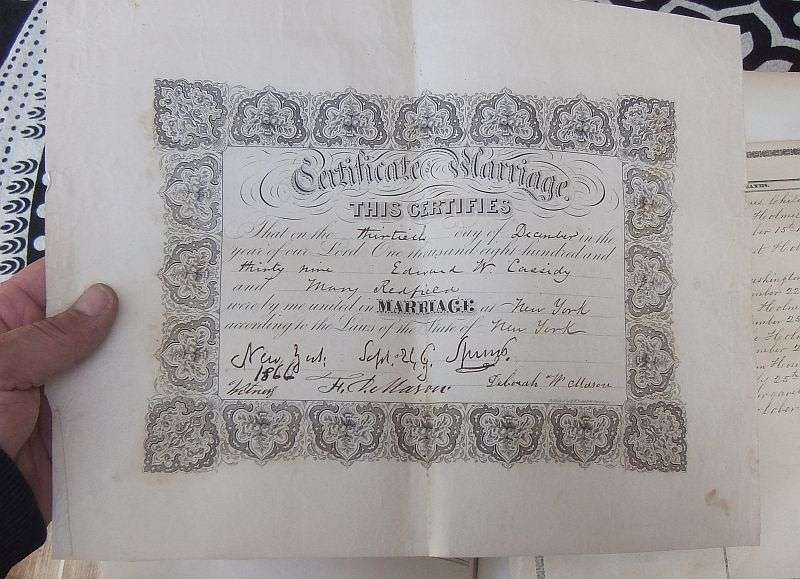 Certificate of Marriage.
THIS CERTIFIES
That on the thirtieth day of December in the
year of our Lord One thousand eight hundred and
thirty nine Edward W. Cassidy
and Mary Redfield
were by me united in MARRIAGE at New York
according to the Laws of the State of New York
New York Sept. 26
1866
Witness Deborah W. Mason
Holmes
Holmes